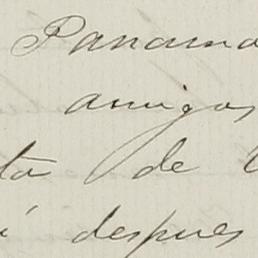 Panama
amigos
to de l
í despues